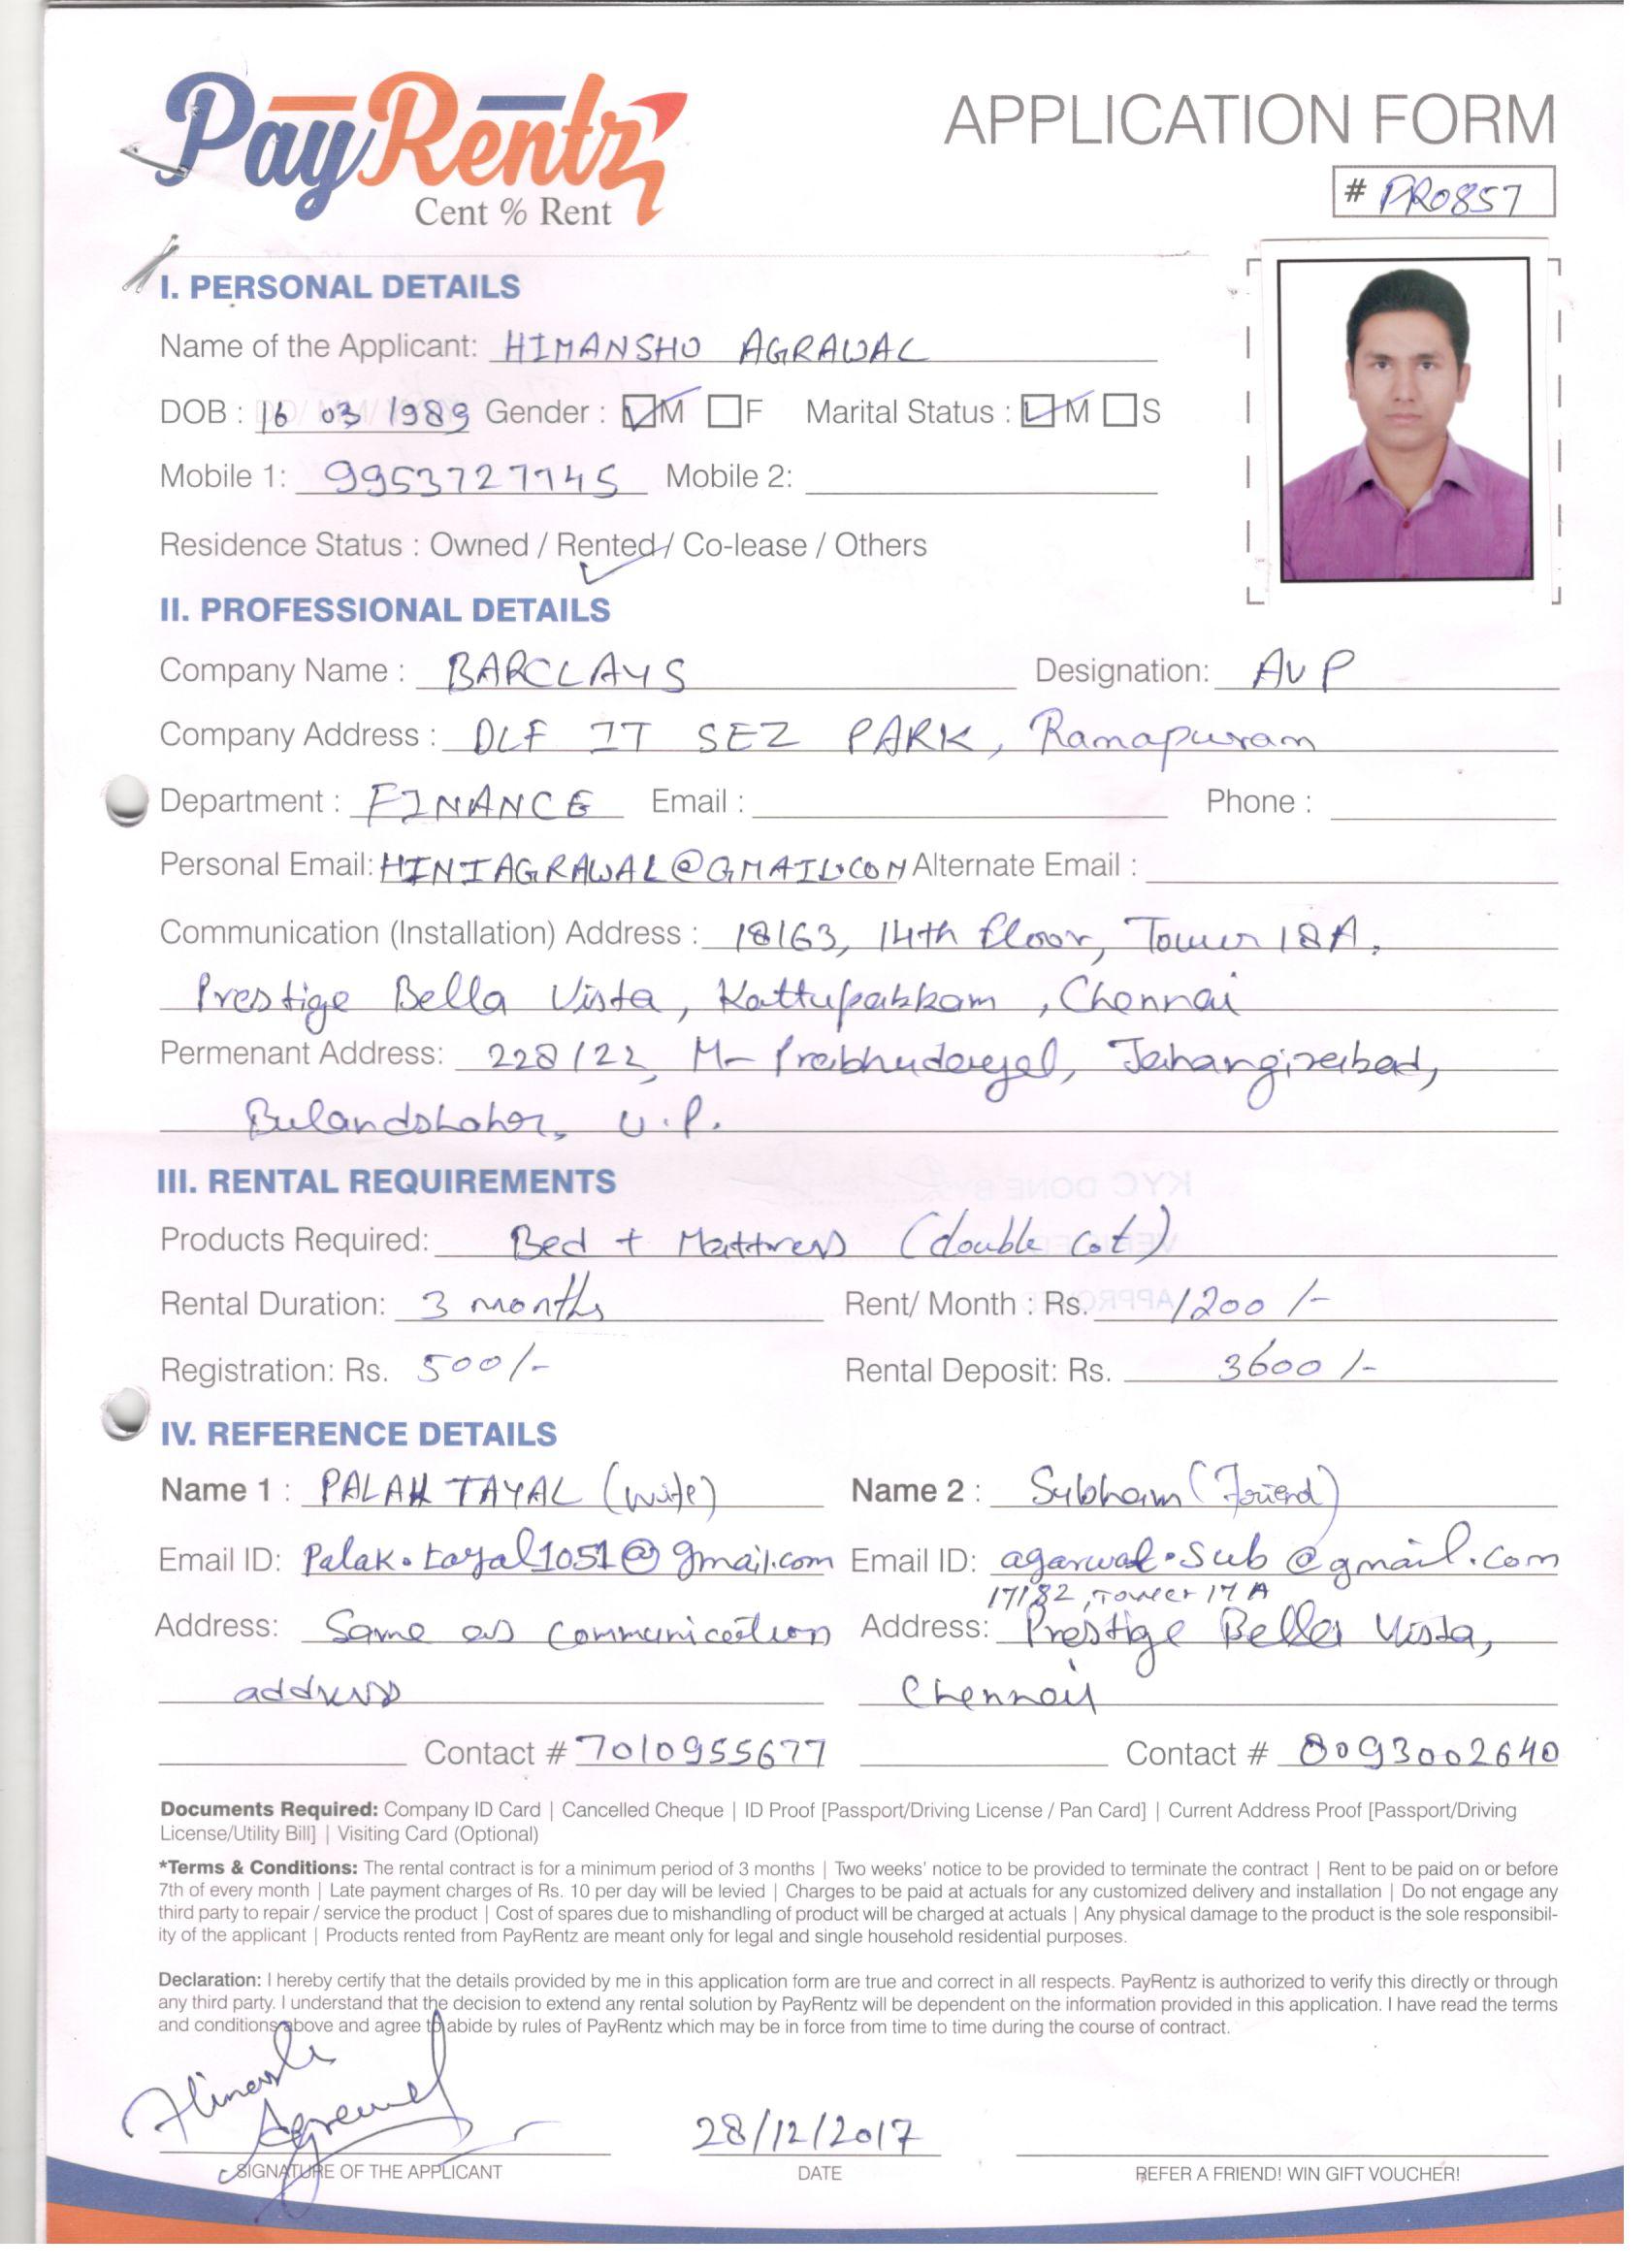 PayRentz
Cent % Rent
APPLICATION FORM
# PR0857
I. PERSONAL DETAILS
Name of the Applicant: HIMANSHU AGRAWAL
DOB : 16 03 1989 Gender : M F Marital Status : M S
Mobile 1: 9953727745 Mobile 2:
Residence Status : Owned / Rented / Co-lease / Others
II. PROFESSIONAL DETAILS
Company Name : BARCLAYS Designation: AVP
Company Address : DLF IT SEZ PARK, Ramapuram
Department : FINANCE Email : Phone :
Personal Email: HINIAGRAWAL@GMAIL.COM Alternate Email :
Communication (Installation) Address : 18163, 14th floor, Tower 18A,
Prestige Bella Vista, Kattupakkam, Chennai
Permenant Address: 228/22, M- Prabhudayal, Jahangirabad,
Bulandshahr, U.P.
III. RENTAL REQUIREMENTS
Products Required: Bed + Mattress (double cot)
Rental Duration: 3 months Rent/ Month : Rs. 1200/-
Registration: Rs. 500/- Rental Deposit: Rs. 3600/-
IV. REFERENCE DETAILS
Name 1 : PALAK TAYAL (wife) Name 2 : Subham (Friend)
Email ID: Palak.tayal1051@gmail.com Email ID: agarwal.sub@gmail.com
17182, Tower 17A
Address: Same as communication Address: Prestige Bella Vista,
address Chennai
Contact # 7010955677 Contact # 8093002640
Documents Required: Company ID Card | Cancelled Cheque | ID Proof [Passport/Driving License / Pan Card] | Current Address Proof [Passport/Driving
License/Utility Bill] | Visiting Card (Optional)
*Terms & Conditions: The rental contract is for a minimum period of 3 months | Two weeks' notice to be provided to terminate the contract | Rent to be paid on or before
7th of every month | Late payment charges of Rs. 10 per day will be levied | Charges to be paid at actuals for any customized delivery and installation | Do not engage any
third party to repair / service the product | Cost of spares due to mishandling of product will be charged at actuals | Any physical damage to the product is the sole responsibil-
ity of the applicant | Products rented from PayRentz are meant only for legal and single household residential purposes.
Declaration: I hereby certify that the details provided by me in this application form are true and correct in all respects. PayRentz is authorized to verify this directly or through
any third party. I understand that the decision to extend any rental solution by PayRentz will be dependent on the information provided in this application. I have read the terms
and conditions above and agree to abide by rules of PayRentz which may be in force from time to time during the course of contract.
Himanshu
Agrawal
28/12/2017
SIGNATURE OF THE APPLICANT DATE REFER A FRIEND! WIN GIFT VOUCHER!